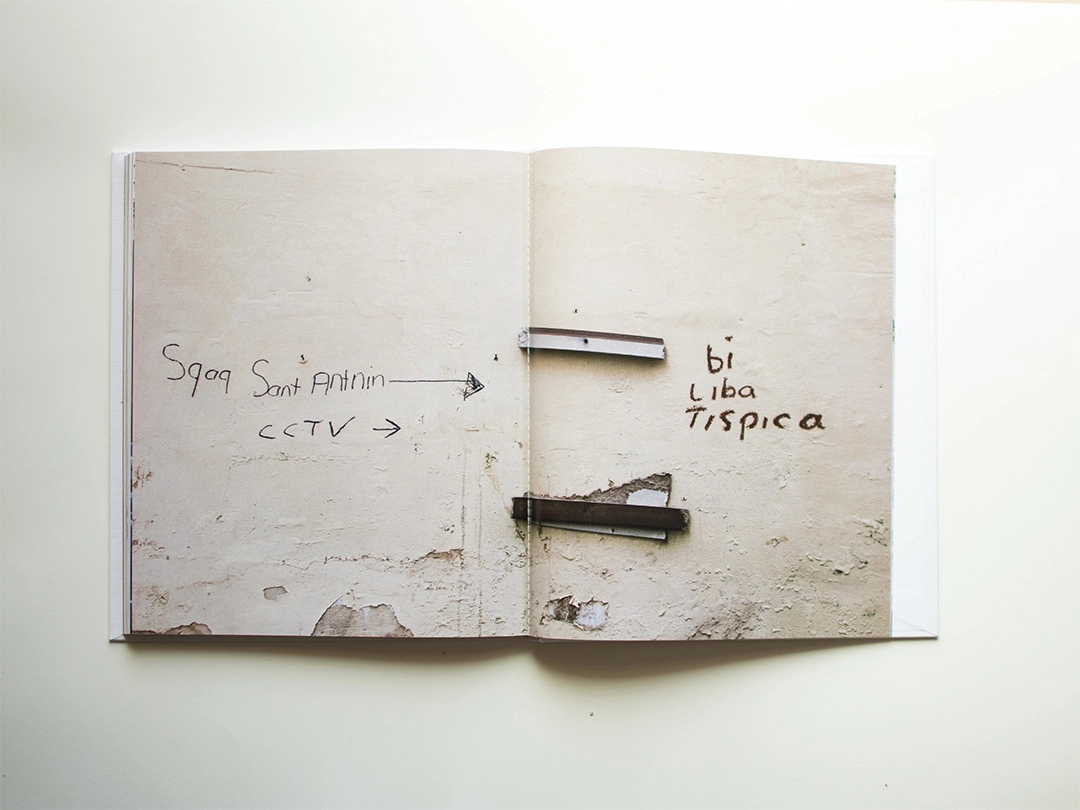 Sqaq Sant Antnin
CCTV →
bi
LIba
TIspica